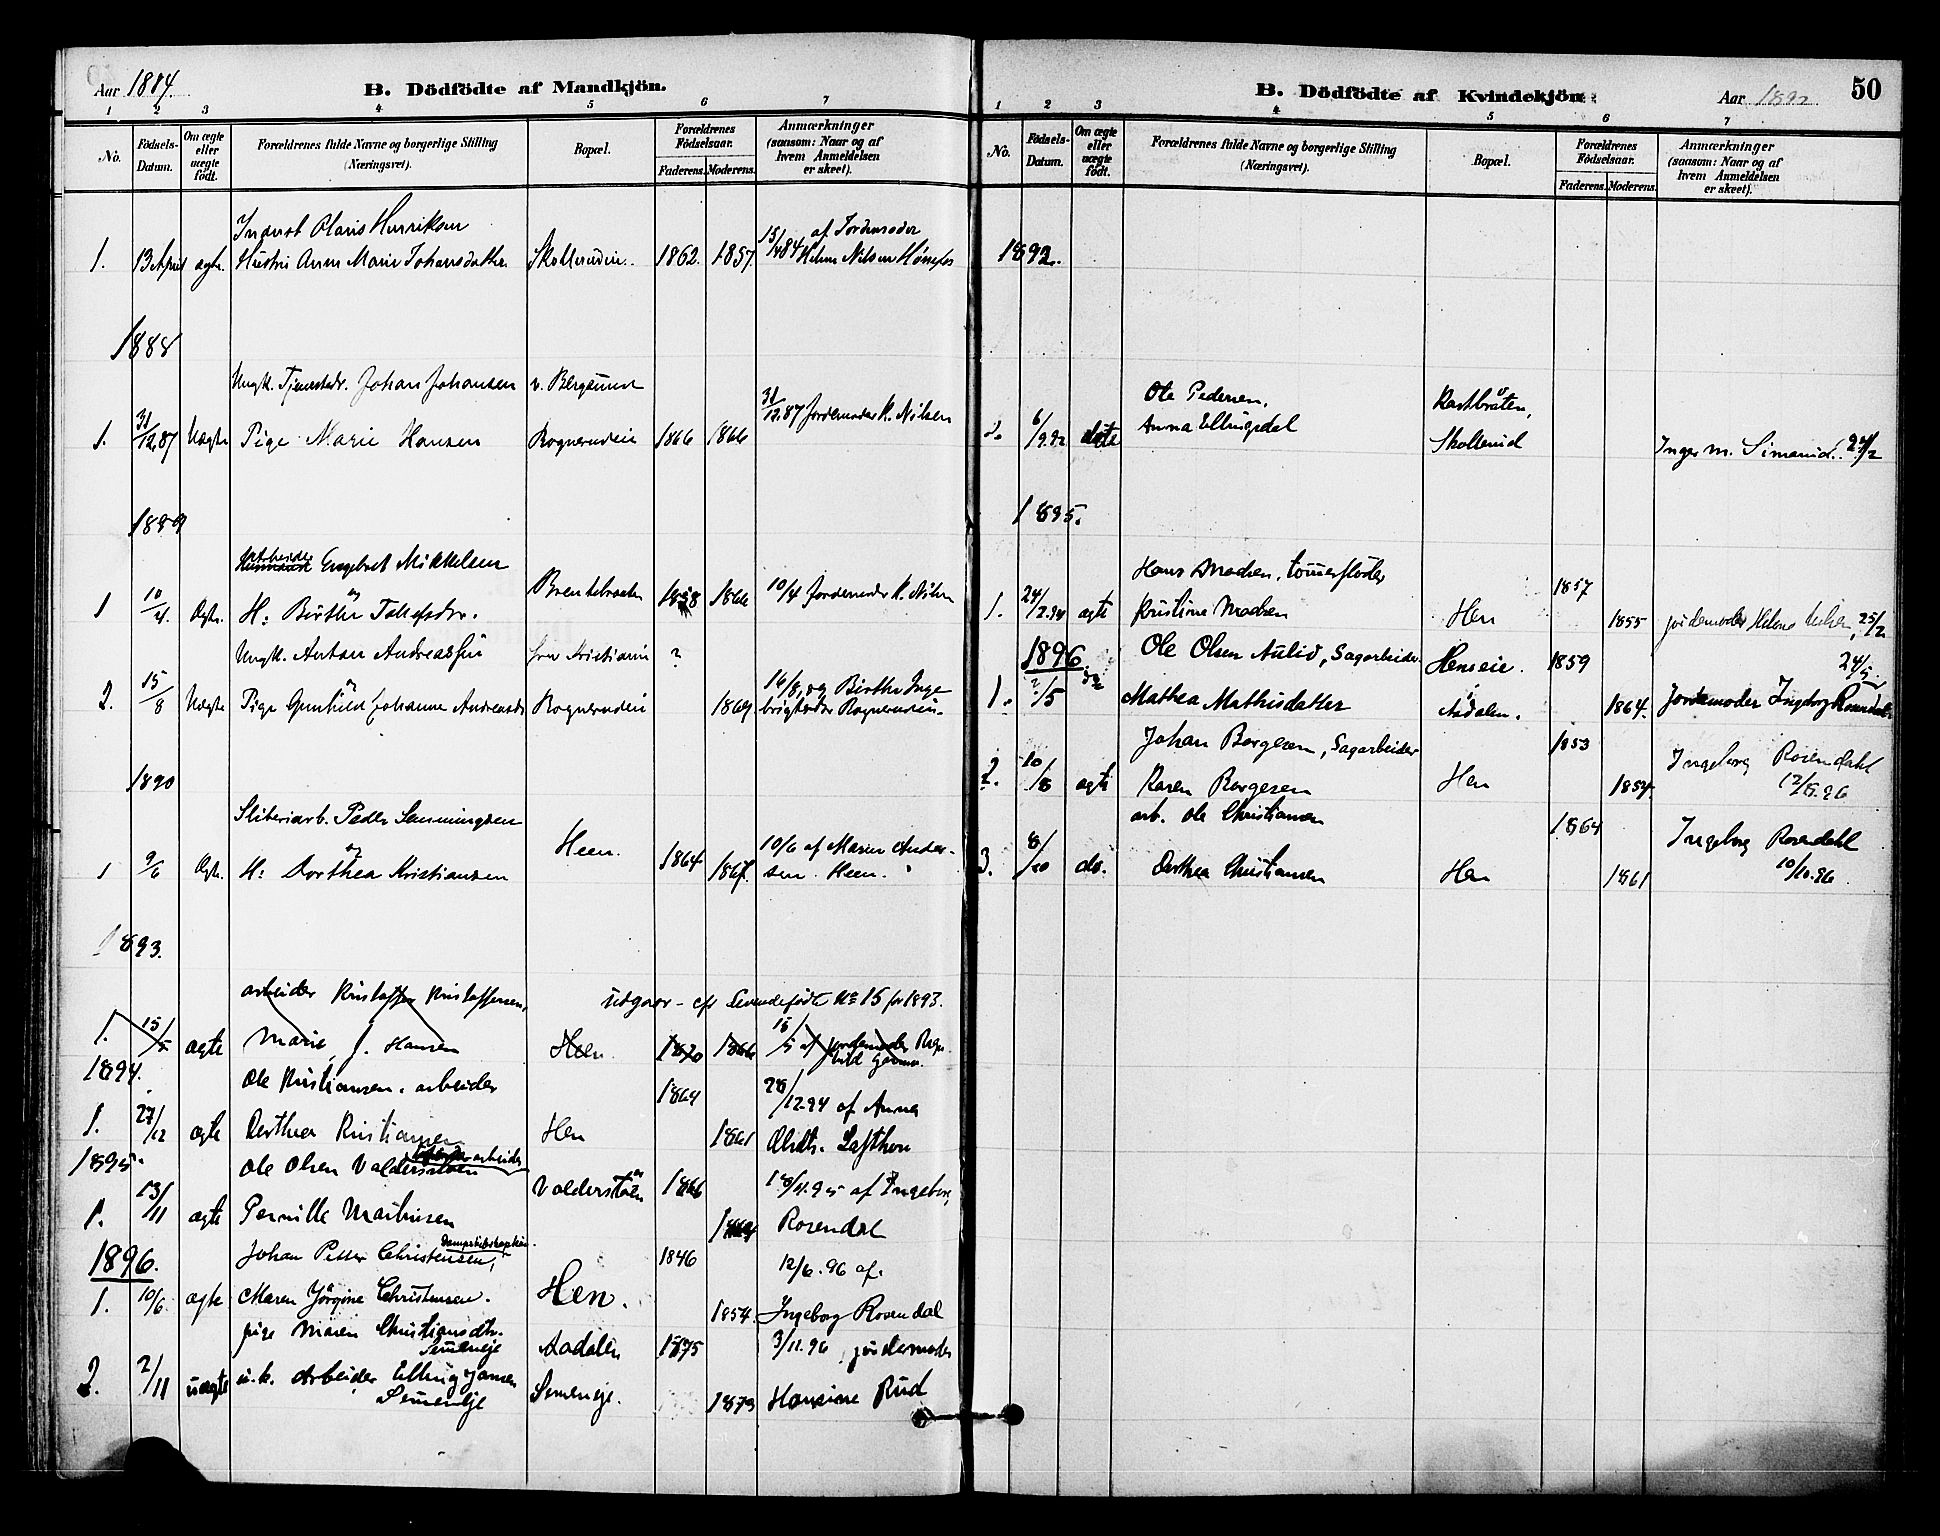 Aar 1884.
B. Dödfödte af Mandkjön.
1 2 3 4 5 6 7
No.
Födsels-Datum.
Om ægte eller uægte födt.
Forældrenes fulde Navne og borgerlige Stilling (Næringsvei).
Bopæl.
Forældrenes Födselsaar.
Faderens. Moderens.
Anmærkninger (saasom: Naar og af hvem Anmeldelsen er skeet).
Olaus Henriksen
1. 13 April ægte. Hustru Anne Marie Johansdatter 1862. 1857. 15/4 84 af Jordemoder Helene Nilsen Hønefos
1888
Ungk. Johan Johansen v. Bergsund
1. 31/12.87 Uægte Pige Marie Hansen Rognerudeie 1866 1866 31/12.87 Jordemoder K. Nilsen
1889
Arbeider Engebret Mikkelsen
1 10/4. Ægte. og H: Birthe 1858 1866 10/4 Jordemoder K. Nilsen
Ungk. Anton Andreassen fra Kristiania ?
2. 15/8 Uægte og Pige Gunhild Johanne Andreasdr Rognerudeie 1869 16/8, og Birthe Ingebrigtsdr Rognerudeie.
1890
Sliberiarb. Peder Semmingsen
1 9/6 Ægte. og H: Dorthea Kristiansen Heen. 1864. 1867. 10/6 af Maren Andersen. Heen.
1893.
arbeider Kristoffer Kristoffersen, udgaar - cfr Levendefødte No 15 for 1893.
1. 15/5 ægte Marie J. Hansen Heen 1870 1866 15/5 af jordemoder
1894.
Ole Kristiansen. arbeider 1864 28/12.94 af Anna
1. 27/12 ægte Dorthea Kristiansen Hen 1861 Olsdtr. Lafthon
1895.
Ole Olsen Valderstøen arbeider
1. 13/11 ægte Pernille Mathisen Valderstøen 1866 18/11.95 af Ingeborg Rosendal
1896.
Johan Petter Christensen, 1846 12/6.96 af.
1. 10/6. ægte Maren Jörgine Christensen. Hen. 1854. Ingeborg Rosendal
pige Maren Christiansdtr. Semeneje Aadalen 1875 3/11.96 jordemoder
2. 2/11 uægte u.k. Arbeider Elling Jansen Semeneje Semeneje. 1873 Hansine Rud
B. Dödfödte af Kvindekjön.
Aar 1892. 50
1 2 3 4 5 6 7
No.
Födsels-Datum.
Om ægte eller uægte födt.
Forældrenes fulde Navne og borgerlige Stilling (Næringsvei).
Bopæl.
Forældrenes Födselsaar.
Faderens. Moderens.
Anmærkninger (saasom: Naar og af hvem Anmeldelsen er skeet).
1892.
Ole Pedersen, Rastbråten,
6/9.92 Anna Ellingsdal Skollerud Inger M. Simenrud.
1895.
Hans Madsen, tømmerfløder 1857
1. ægte Kristine Madsen Hen 1855 jordemoder Helene Nilsen, 25/2
1896
Ole Olsen Aulid, Sagarbeider Henseie. 1859 24/5.
1. ?/5 Mathea Mathisdatter Aadalen. 1864. Jordemoder Ingeborg Rosendal
Johan Borgesen, Sagarbeider 1853 Ingeborg Rosendahl
2. 10/8 ægte Karen Borgesen Hen 1854. 12/8.96
arb. Ole Christiansen 1864 Ingeborg Rosendahl
3. 8/10 do. Dorthea Christiansen Hen 1861 10/10.96